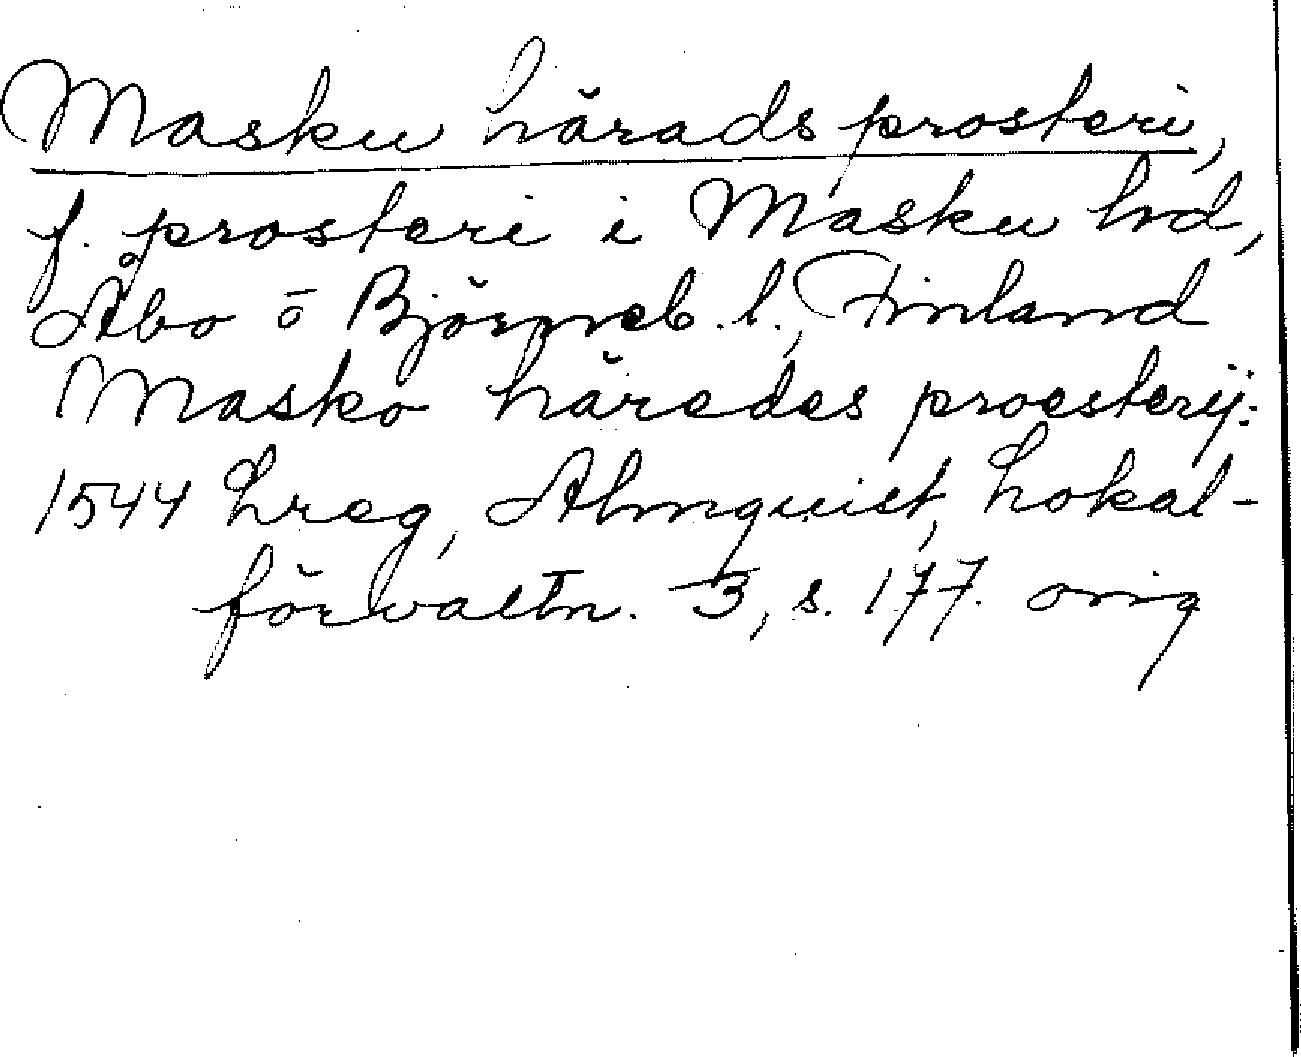 Masku härads prosteri,
f. prosteri i Masku hd,
Åbo o Björneb. l., Finland
Masko häredes proestery:
1544 Lreg, Almquist, Lokal-
förvaltn. 3, s. 177. orig